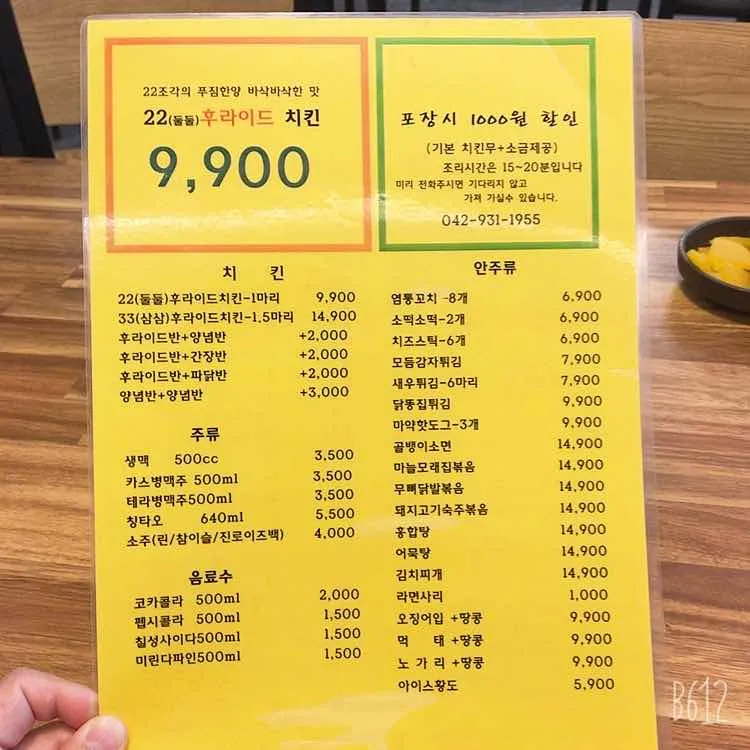 22조각의 푸짐한양 바삭바삭한 맛
22(둘둘)후라이드 치킨
9,900
포장시 1000원 할인
(기본 치킨무+소금제공)
조리시간은 15~20분입니다
미리 전화주시면 기다리지 않고
가져 가실수 있습니다.
042-931-1955
치 킨
22(둘둘)후라이드치킨-1마리 9,900
33(삼삼)후라이드치킨-1.5마리 14,900
후라이드반+양념반 +2,000
후라이드반+간장반 +2,000
후라이드반+파닭반 +2,000
양념반+양념반 +3,000
주류
생맥 500cc 3,500
카스병맥주 500ml 3,500
테라병맥주500ml 3,500
칭타오 640ml 5,500
소주(린/참이슬/진로이즈백) 4,000
음료수
코카콜라 500ml 2,000
펩시콜라 500ml 1,500
칠성사이다500ml 1,500
미린다파인500ml 1,500
안주류
염통꼬치 -8개 6,900
소떡소떡-2개 6,900
치즈스틱-6개 6,900
모듬감자튀김 7,900
새우튀김-6마리 7,900
닭똥집튀김 9,900
마약핫도그-3개 9,900
골뱅이소면 14,900
마늘모래집볶음 14,900
무뼈닭발볶음 14,900
돼지고기숙주볶음 14,900
홍합탕 14,900
어묵탕 14,900
김치찌개 14,900
라면사리 1,000
오징어입 +땅콩 9,900
먹 태 +땅콩 9,900
노 가 리 +땅콩 9,900
아이스황도 5,900
B612